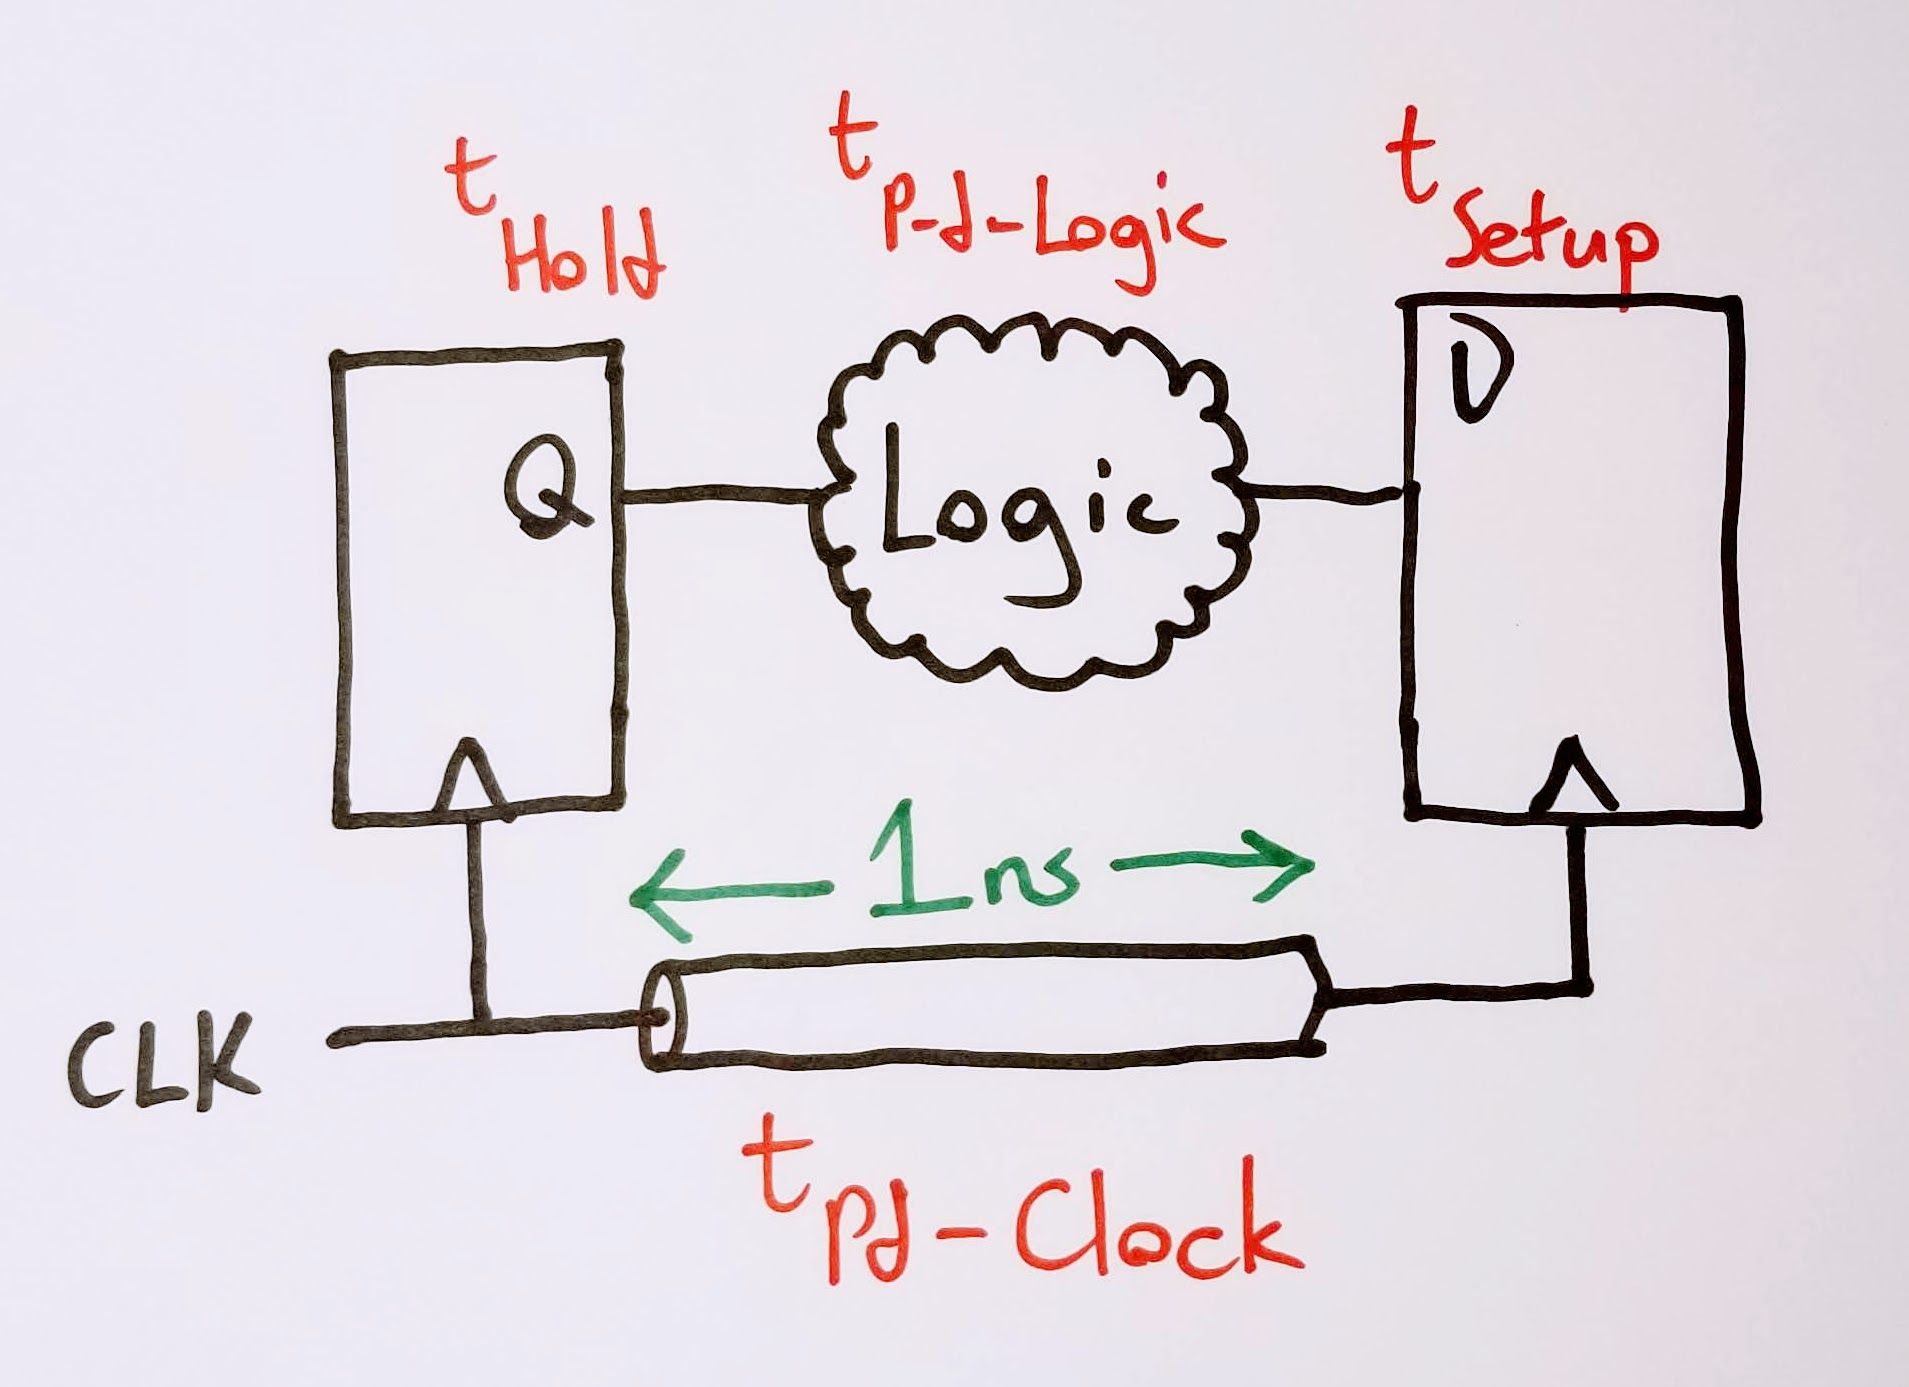 t Hold
t P-d-Logic
t Setup
D
Q
Logic
1ns
CLK
t Pd-Clock